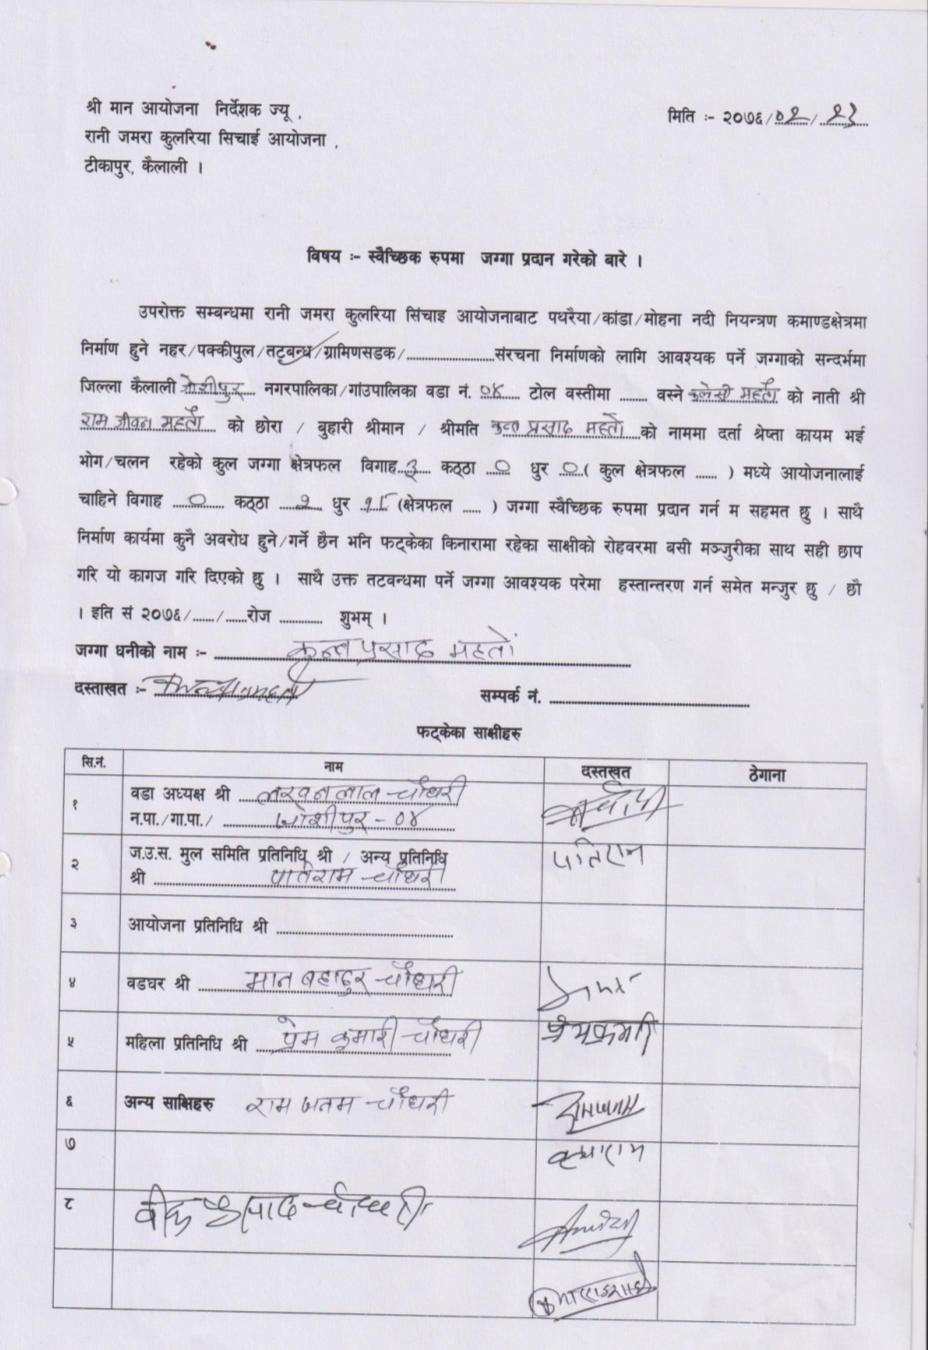 श्री मान आयोजना निर्देशक ज्यू ,
रानी जमरा कुलरिया सिचाई आयोजना ,
टीकापुर, कैलाली ।
मिति :- २०७६/०२/२३
विषय :- स्वैच्छिक रुपमा जग्गा प्रदान गरेको बारे ।
उपरोक्त सम्बन्धमा रानी जमरा कुलरिया सिंचाइ आयोजनाबाट पथरैया/कांडा/मोहना नदी नियन्त्रण कमाण्डक्षेत्रमा
निर्माण हुने नहर/पक्कीपुल/तटबन्ध/ग्रामिणसडक/......................संरचना निर्माणको लागि आवश्यक पर्ने जग्गाको सन्दर्भमा
जिल्ला कैलाली जोशीपुर नगरपालिका/गांउपालिका वडा नं. ०४ टोल वस्तीमा ....... वस्ने महतो को नाती श्री
राम जीवन महतो को छोरा / बुहारी श्रीमान / श्रीमति कुन्त प्रसाद महतो को नाममा दर्ता श्रेष्ता कायम भई
भोग/चलन रहेको कुल जग्गा क्षेत्रफल विगाह ३ कठ्ठा ० धुर ० ( कुल क्षेत्रफल ...... ) मध्ये आयोजनालाई
चाहिने विगाह ० कठ्ठा २ धुर (क्षेत्रफल ..... ) जग्गा स्वैच्छिक रुपमा प्रदान गर्न म सहमत छु । साथै
निर्माण कार्यमा कुनै अवरोध हुने/गर्ने छैन भनि फट्केका किनारामा रहेका साक्षीको रोहवरमा बसी मञ्जुरीका साथ सही छाप
गरि यो कागज गरि दिएको छु । साथै उक्त तटवन्धमा पर्ने जग्गा आवश्यक परेमा हस्तान्तरण गर्न समेत मन्जुर छु / छौ
। इति सं २०७६/....../......रोज ............ शुभम् ।
जग्गा धनीको नाम :- कुन्त प्रसाद महतों
दस्ताखत :-
सम्पर्क नं. ........................................
फट्केका साक्षीहरु
सि.नं. नाम दस्तखत ठेगाना
१ वडा अध्यक्ष श्री लखन लाल चौधरी
न.पा./गा.पा./ जोशीपुर - ०४
२ ज.उ.स. मुल समिति प्रतिनिधि श्री / अन्य प्रतिनिधि
श्री पतिराम चौधरी पतिराम
३ आयोजना प्रतिनिधि श्री ....................................
४ वडघर श्री मान बहादुर चौधरी
५ महिला प्रतिनिधि श्री प्रेम कुमारी चौधरी प्रेमकुमारी
६ अन्य साक्षिहरु राम जतम चौधरी
७
८ प्रसाद चौधरी